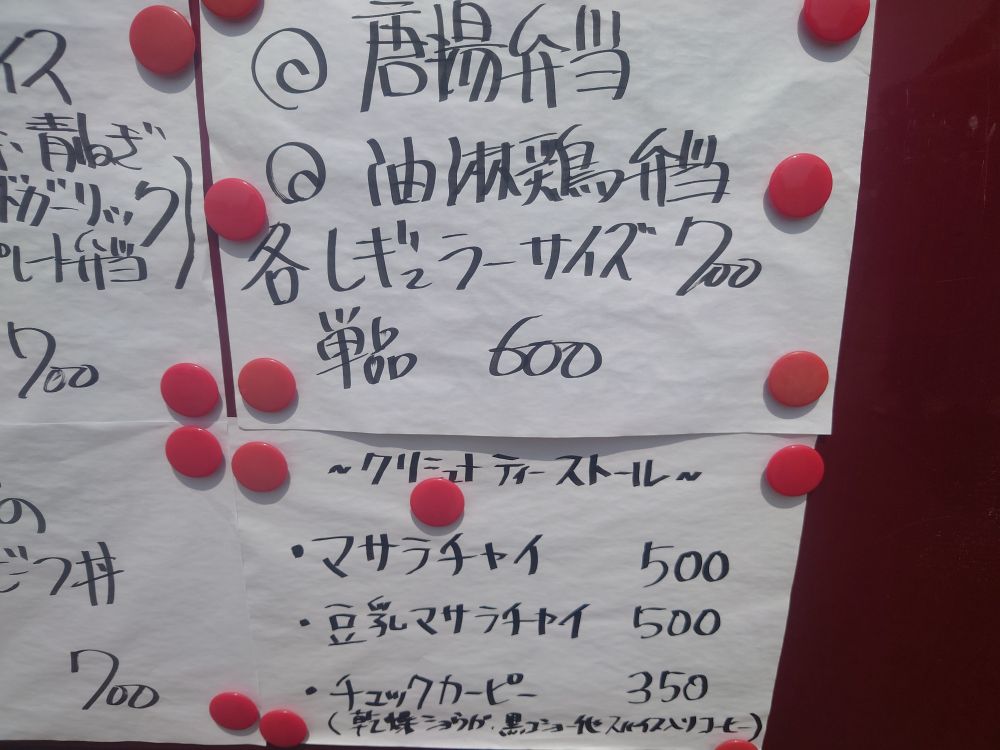 イス
青ねぎ
ドガーリック
プレート弁当)
700
の
ごつ丼
700
@ 唐揚弁当
@ 油淋鶏弁当
各レギュラーサイズ 700
単品 600
~クリシュナ ティーストール~
・マサラチャイ 500
・豆乳マサラチャイ 500
・チュックカーピー 350
(乾燥ショウガ、黒コショー他スパイス入りコーヒー)